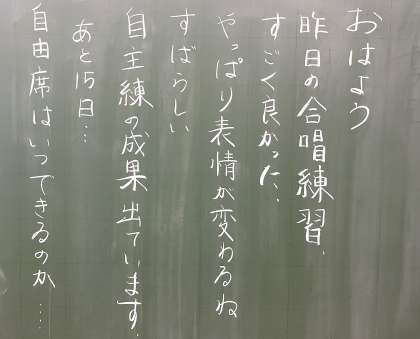 おはよう
昨日の合唱練習、
すごく良かった…
やっぱり表情が変わるね
すばらしい
自主練の成果出ています。
あと15日…
自由席はいつできるのか…